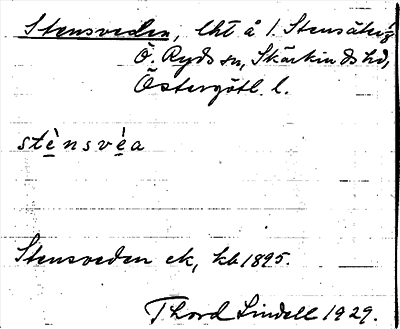 Stensveden, lht å 1. Stensäter,
Ö. Ryds sn, Skärkinds hd,
Östergötl. l.
stè̱nsvè̱a
Stensveden ek, kb 1895.
Thord Lindell 1929.